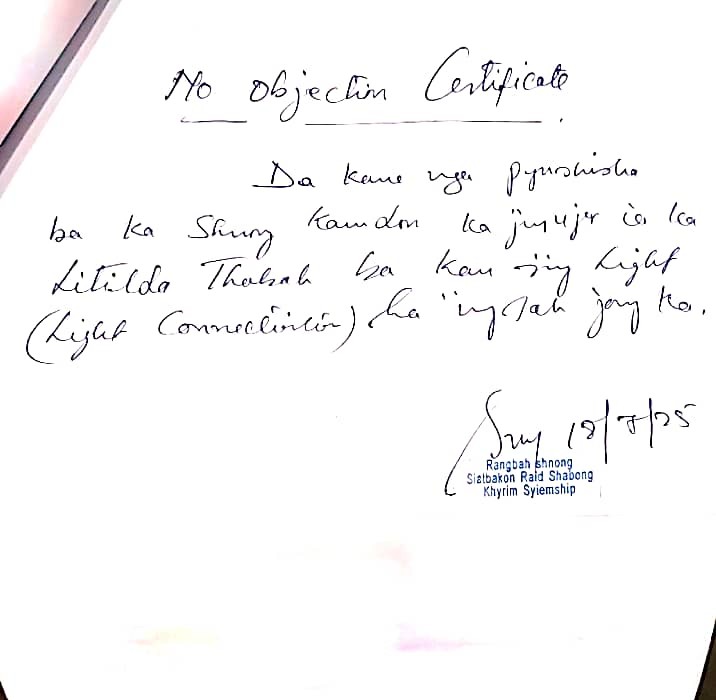 No Objection Certificate
Da kane nga pynshisha
ba ka Shnong kamdon ka jingujor ia ka
Litilda Thabah ba kan ring Light
(Light Connection) ha ïingsah jong ka.
18/7/25
Rangbah shnong
Sialbakon Raid Shabong
Khyrim Syiemship